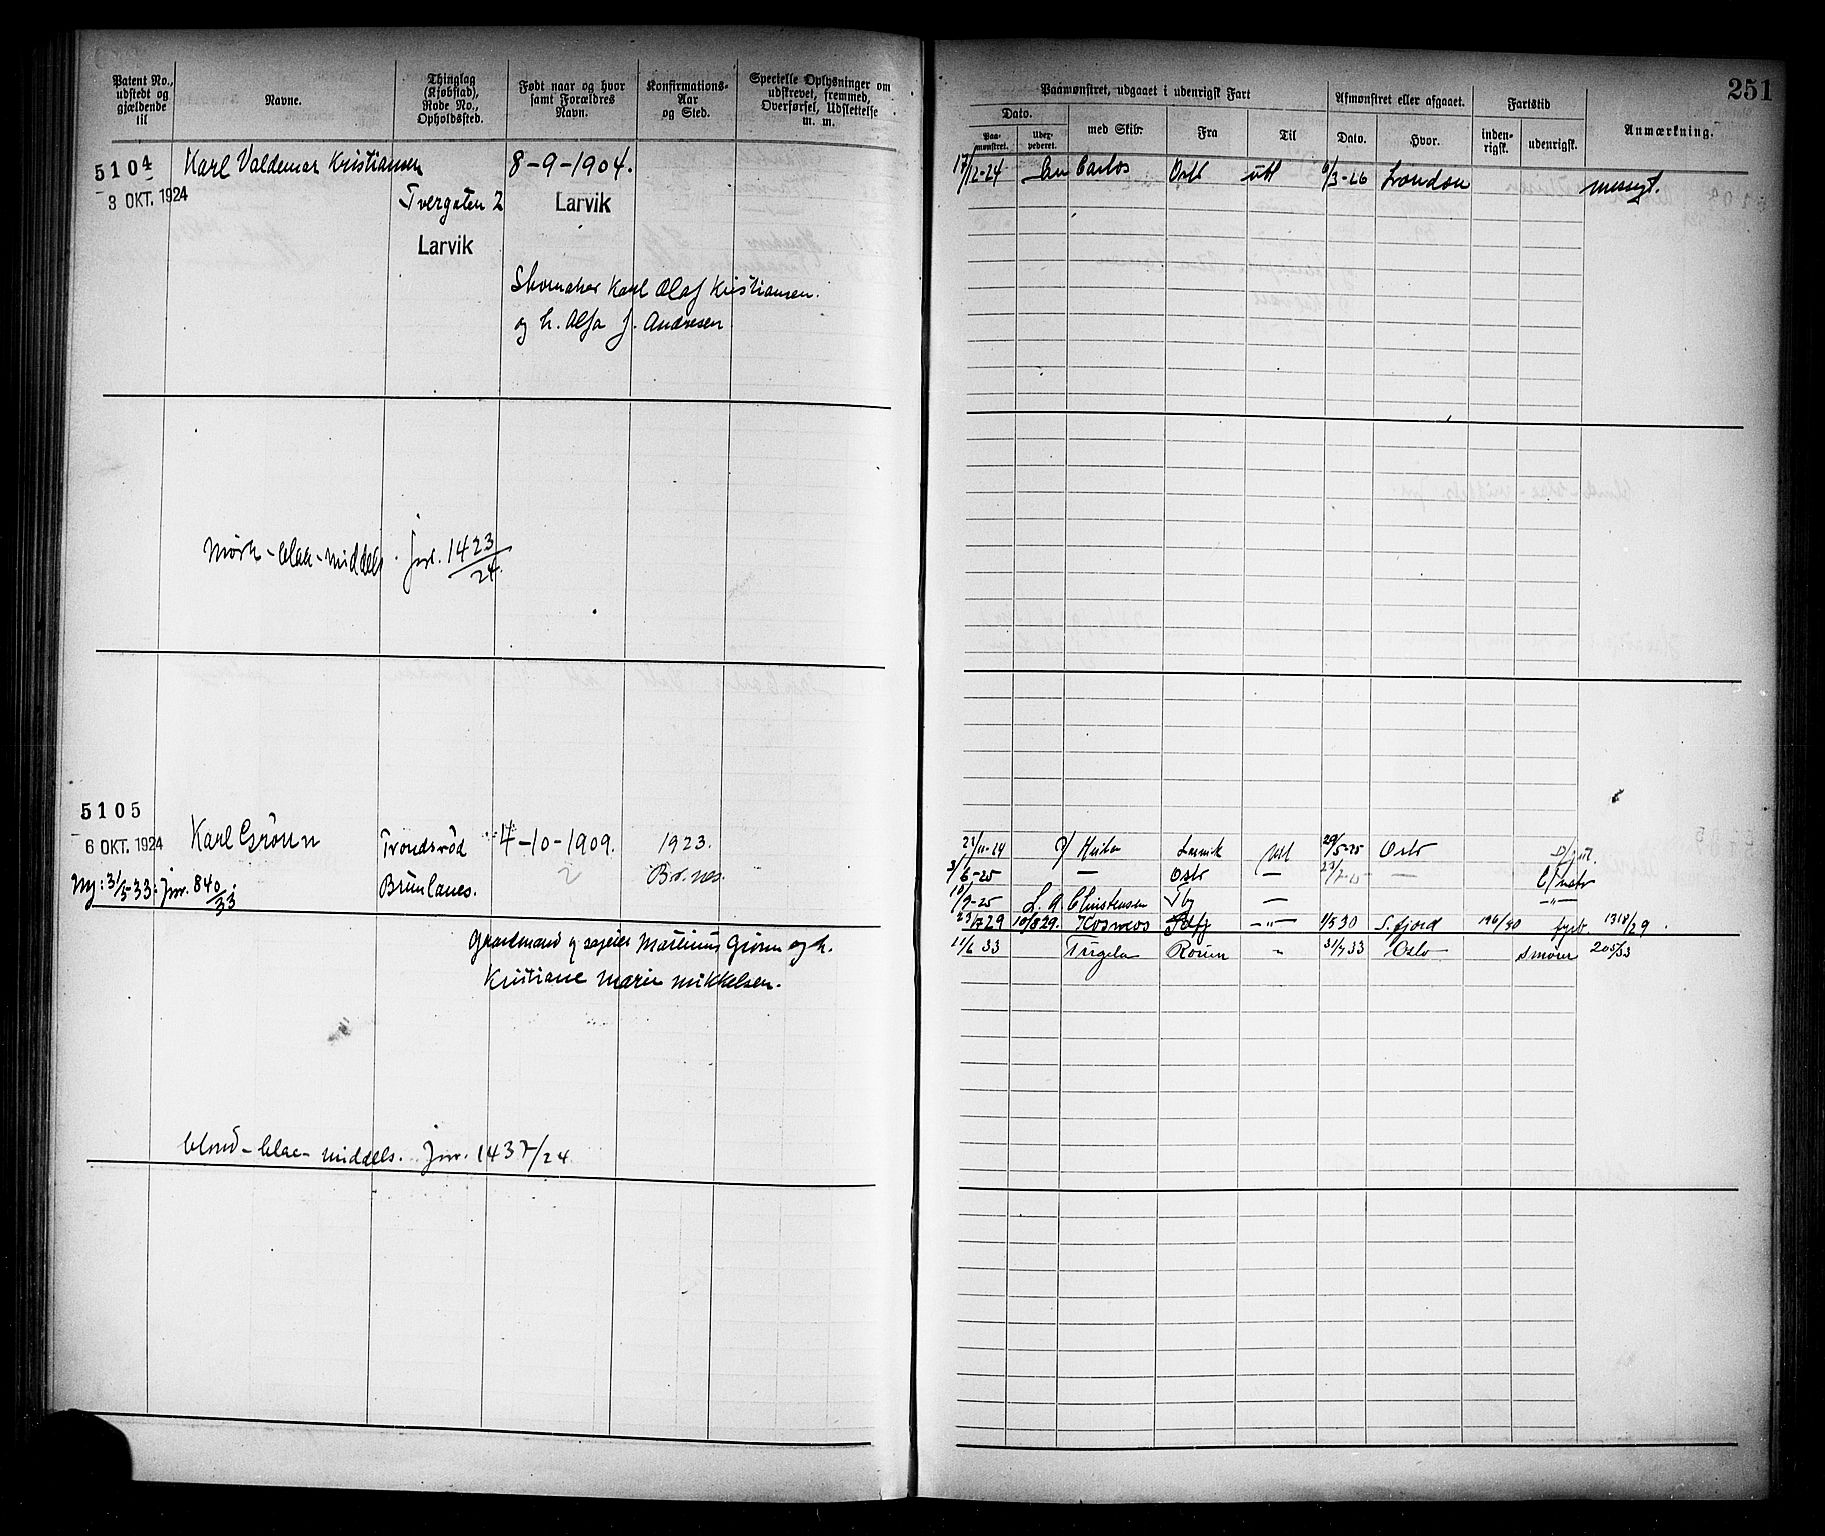 251
Patent No., udstedt og gjældende til
Navne.
Thinglag (Kjøbstad), Rode No., Opholdssted.
Født naar og hvor samt Forældres Navn.
Konfirmations- Aar og Sted.
Specielle Oplysninger om udskrevet, fremmed, Overførsel, Udslettelse m. m.
Paamønstret, udgaaet i udenrigsk Fart
Afmønstret eller afgaaet.
Fartstid
Anmærkning.
Dato.
Paa- mønstret.
med Skib.
Fra
Til
Dato.
Hvor.
inden- rigsk.
udenrigsk.
5104 Karl Valdemar Kristiansen 8-9-1904.
3 OKT. 1924 Tvergaten 2 Larvik
Larvik
Skomaker Karl Olaf Kristiansen
og h. Alfa f. Andresen
17/12-24 San Carlos Oslo utl 6/3-26 London messgt.
Mørk - blaa - middels. Jnr. 1423/24.
5105
6 OKT. 1924 Karl Grønn Trondsrød 4-10-1909. 1923.
Ny: 31/5-33: Jnr. 840/33 Brunlanes. Br.nes.
Gaardmand og sageier Martinius Grønn og h.
Kristiane Marie Mikkelsen.
22/11-24 Larvik Utl 29/5-25 Oslo
3/6-25 — Oslo — —
10/9-25 L. A. Christensen Tbg —
23/7 29 10/8 29. Kosmos Sdfj -"- 1/5 30 S.fjord 196/30 fyrb. 1318/29.
11/6 33 31/7 33 Oslo Smører 205/33
blond - blaa - middels. Jnr. 1437/24